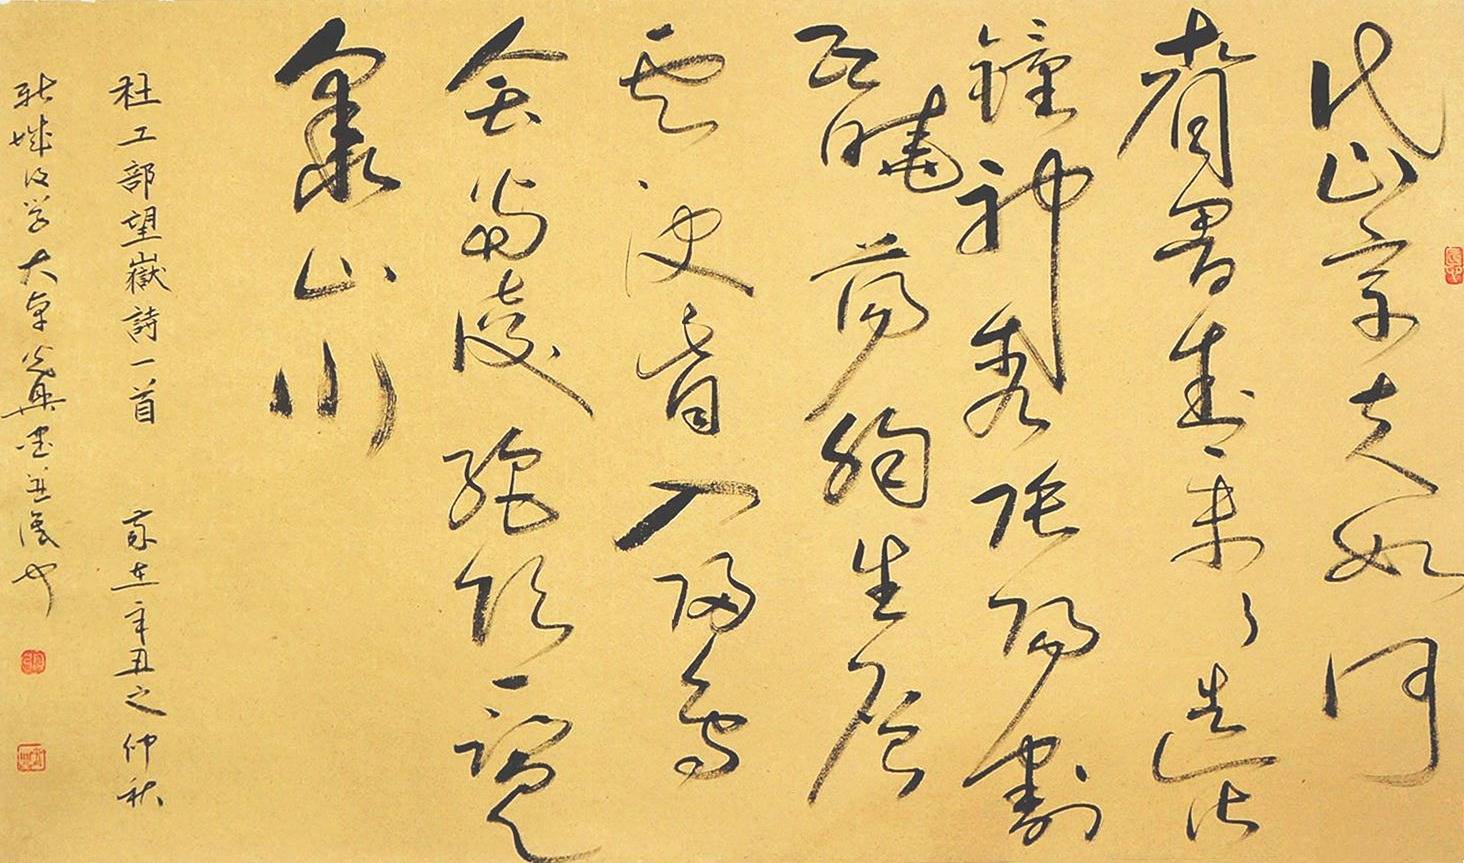 岱宗夫如何
齊魯青未了造化
鐘神秀陰陽割
昏曉蕩胸生層
雲決眥入歸鳥
會當凌絕頂一覽
眾山小
杜工部望嶽詩一首 歲在辛丑之仲秋
後學大